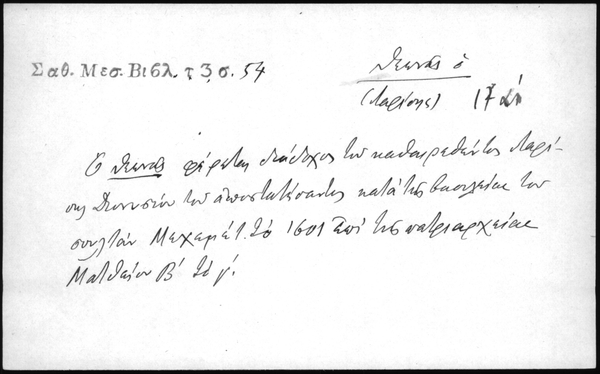 Σαθ. Μεσ. Βιβλ. τ. 3, σ. 54
Λεωνᾶς ὁ
(Λαρίσης) 17
Ὁ Λεωνᾶς φέρεται διάδοχος τοῦ καθαιρεθέντος Λαρί-
σης Διονυσίου τοῦ ἀποστατήσαντος κατὰ τῆς βασιλείας τοῦ
σουλτὰν Μεχεμέτ. τὸ 1601 ἐπὶ τῆς πατριαρχείας
Ματθαίου Β΄ τὸ γ΄.